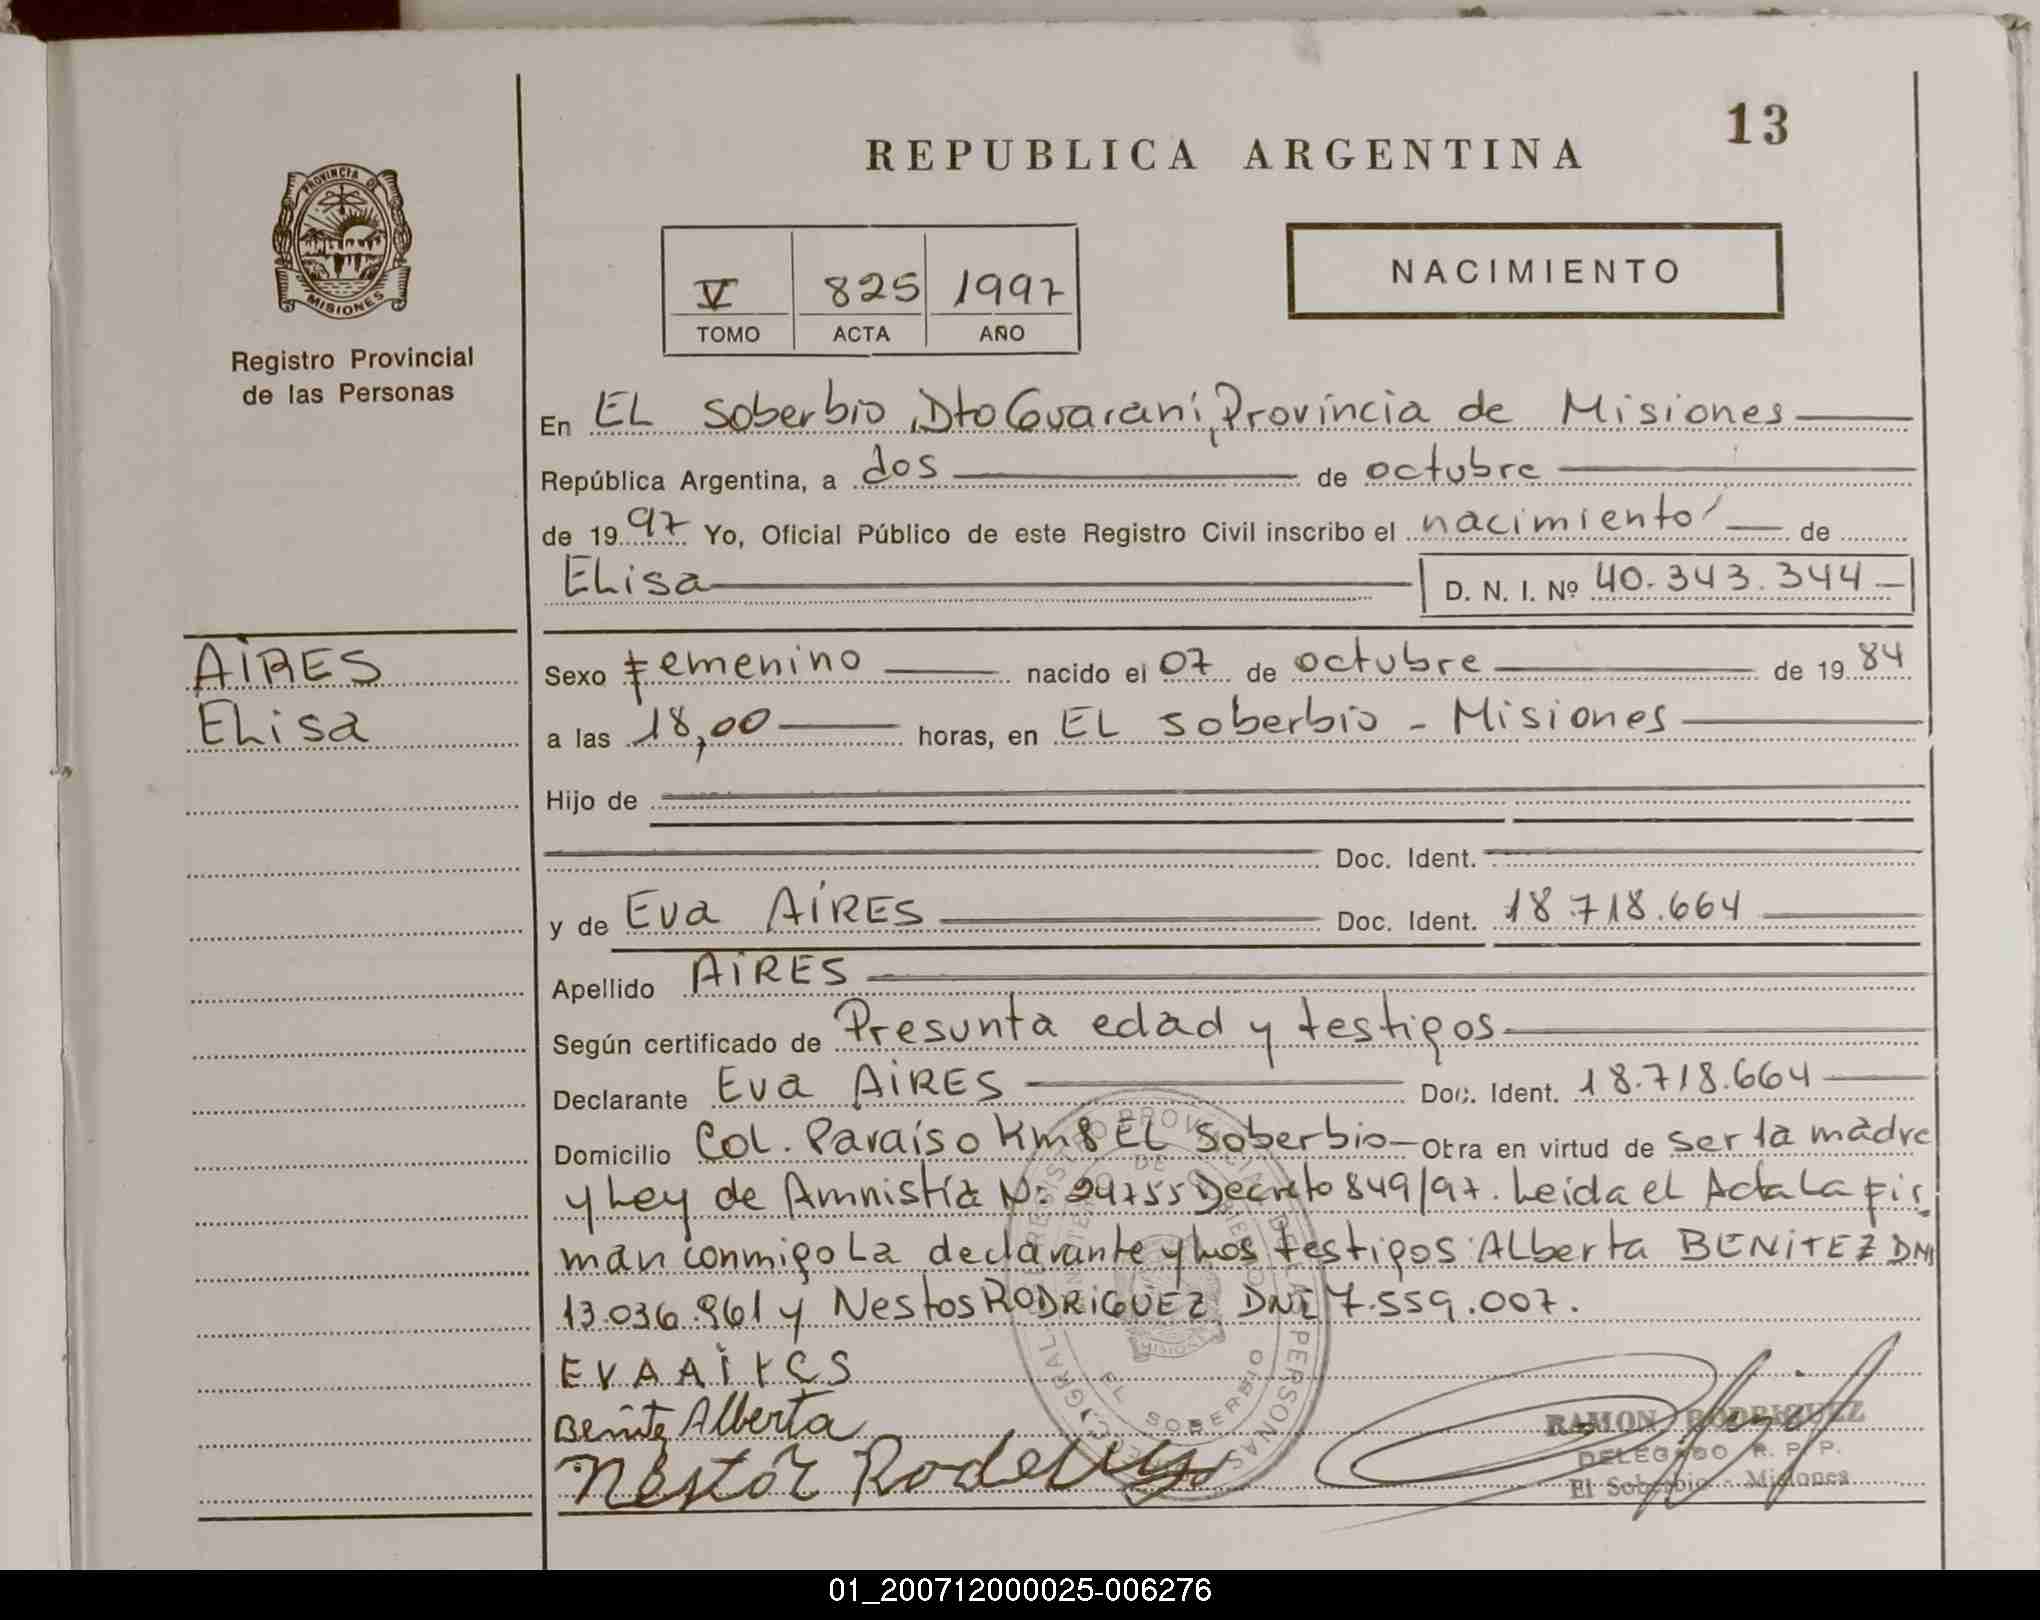 13
REPUBLICA ARGENTINA
PROVINCIA DE
MISIONES
Registro Provincial
de las Personas
V 825 1997
TOMO ACTA AÑO
NACIMIENTO
En EL Soberbio, Dto Guaraní, Provincia de Misiones
República Argentina, a dos de octubre
de 1997 Yo, Oficial Público de este Registro Civil inscribo el nacimiento de
ELisa D. N. I. Nº 40.343.344
AIRES
ELisa
Sexo Femenino nacido el 07 de octubre de 1984
a las 18,00 horas, en EL Soberbio - Misiones
Hijo de
Doc. Ident.
y de Eva AIRES Doc. Ident. 18.718.664
Apellido AIRES
Según certificado de Presunta edad y testigos
Declarante Eva AIRES Doc. Ident. 18.718.664
Domicilio Col. Paraíso Km 8 EL Soberbio Obra en virtud de ser la madre
y Ley de Amnistía N: 24755 Decreto 849/97. Leída el Acta La fir
man conmigo La declarante y Los testigos: ALberta BENITEZ DNI
13.036.961 y Nestos RODRIGUEZ DNI 7.559.007.
EVA AIRES
Benite Alberta
Nestor
RAMON RODRIGUEZ
DELEGADO R. P. P.
El Soberbio - Misiones
EL SOBERBIO
01_200712000025-006276